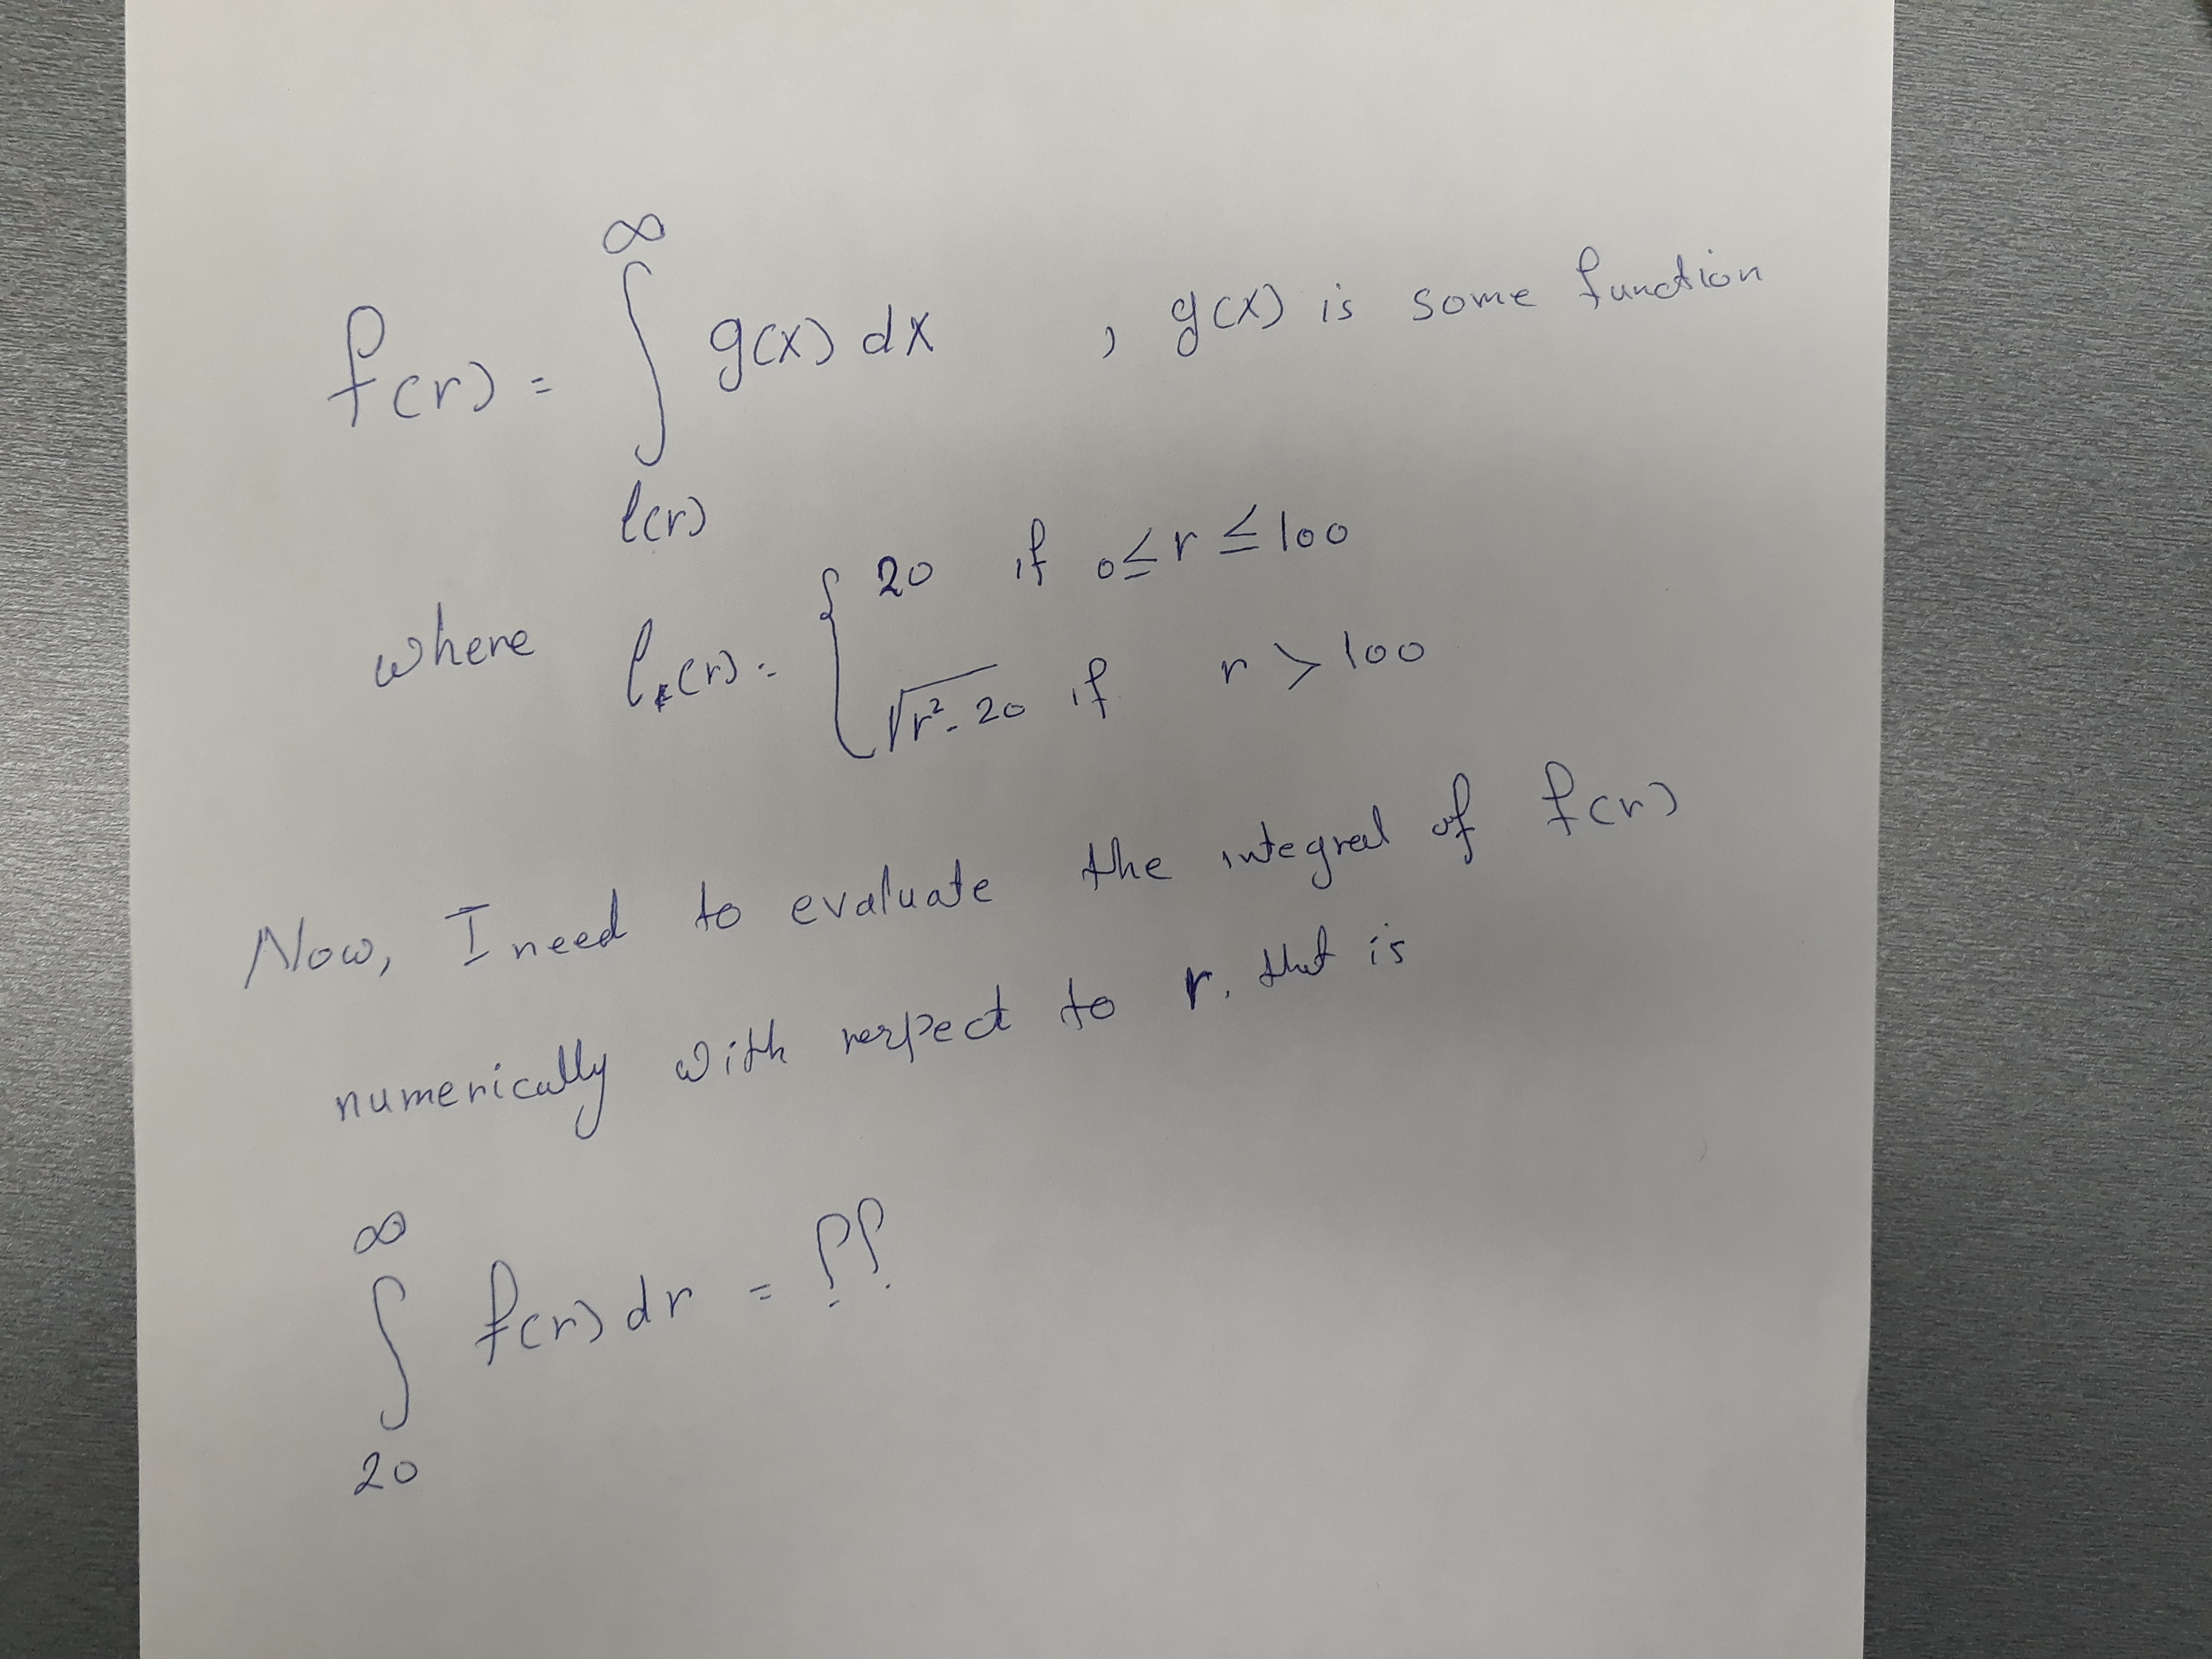 f(r) = ∫_{l(r)}^{∞} g(x) dx , g(x) is some function
where l(r) = { 20 if 0 ≤ r ≤ 100
√(r² - 20) if r > 100
Now, I need to evaluate the integral of f(r)
numerically with respect to r. that is
∫_{20}^{∞} f(r) dr = ??